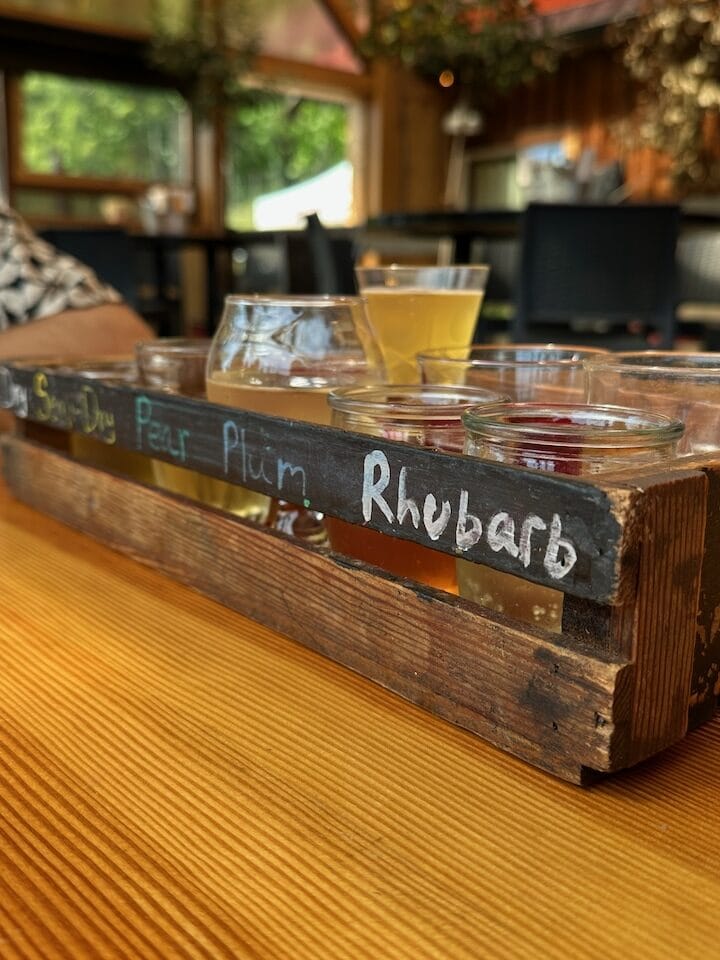 Dry Semi-Dry Pear Plum Rhubarb